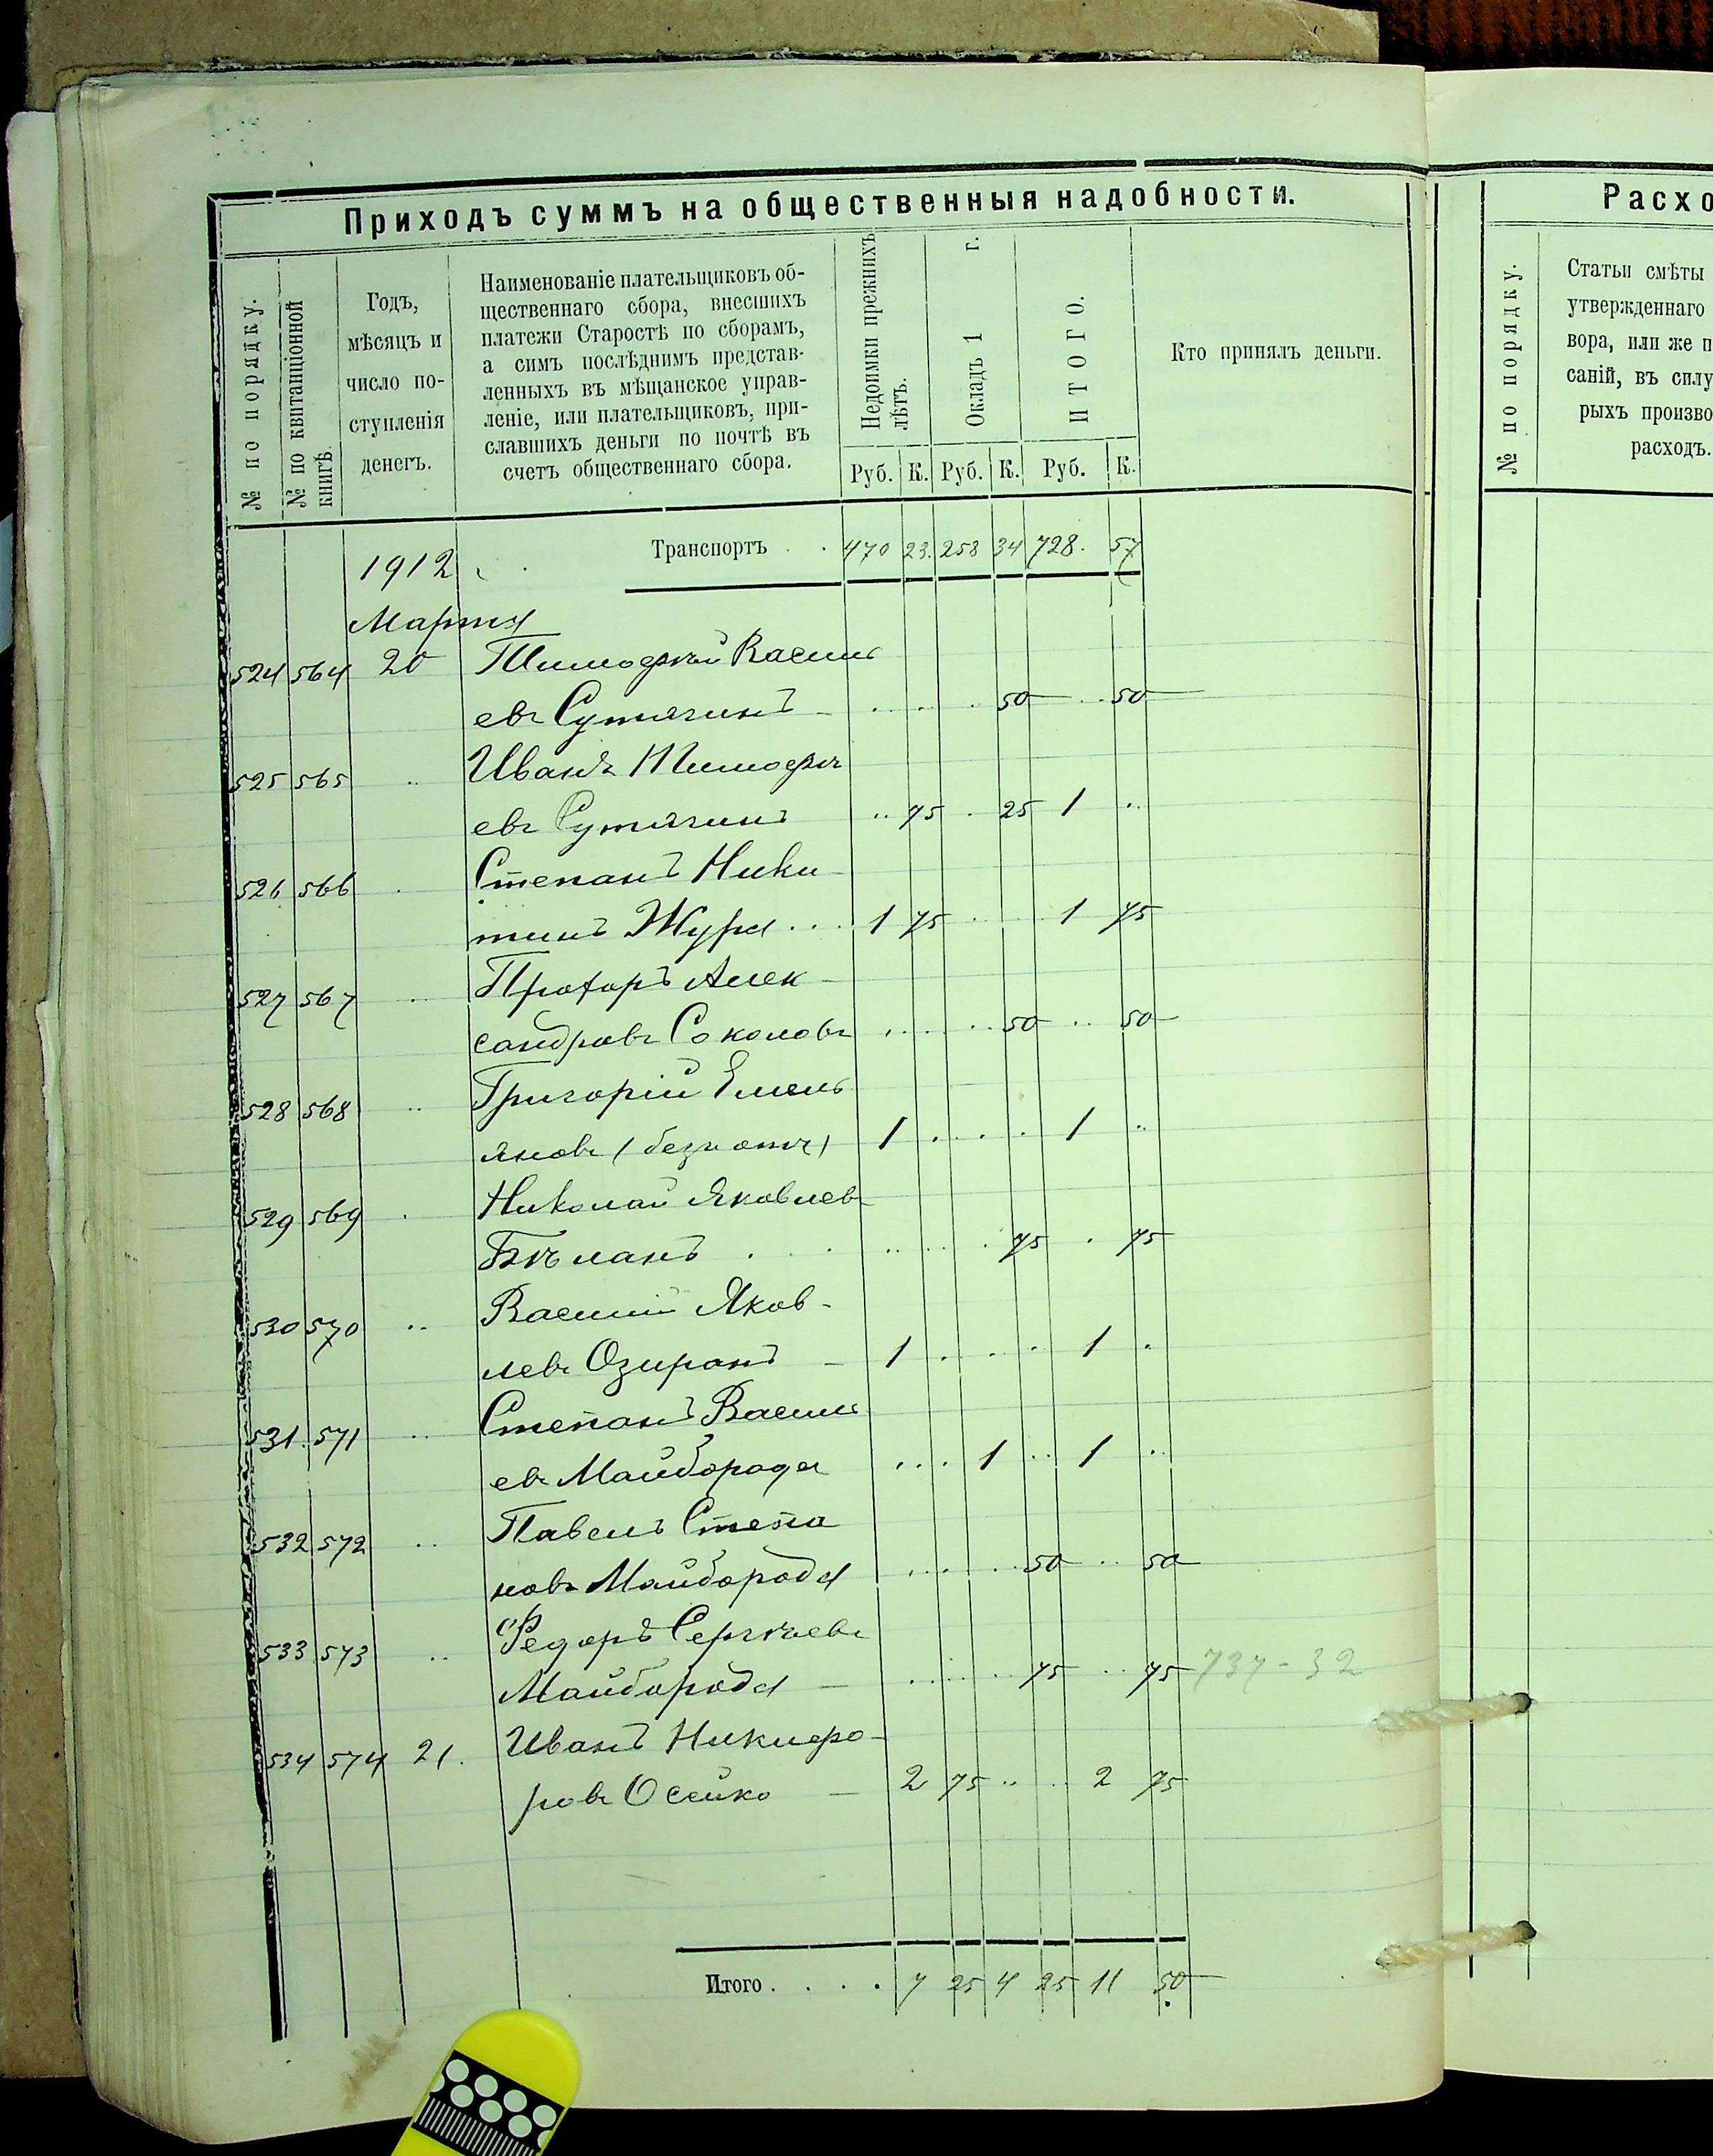 Приходъ суммъ на общественныя надобности.
№ по порядку.
№ по квитанціонной
книгѣ.
Годъ,
мѣсяцъ и
число по-
ступленія
денегъ.
Наименованіе плательщиковъ об-
щественнаго сбора, внесшихъ
платежи Старостѣ по сборамъ,
а симъ послѣднимъ представ-
ленныхъ въ мѣщанское управ-
леніе, или плательщиковъ, при-
славшихъ деньги по почтѣ въ
счетъ общественнаго сбора.
Недоимки прежнихъ
лѣтъ.
Окладъ 1 г.
ИТОГО.
Кто принялъ деньги.
Руб. К. Руб. К. Руб. К.
1912 Транспортъ . . 470 23. 258 34 728. 57
Марта
524 564 20 Тимофѣй Василь
евъ Сутягинъ — 50 50
525 565 .. Иванъ Тимофѣ
евъ Сутягинъ .. 75 . 25 1 ..
526 566 . Степанъ Ники-
тинъ Жура ... 1 75 1 75
527 567 .. Прохоръ Алек-
сандровъ Соколовъ 50 .. 50
528 568 .. Григорій Емель
яновъ (безъ отч) 1 . . . . 1 ..
529 569 . Николай Яковлевъ
Бѣланъ 75 . 75
530 570 .. Василій Яков-
левъ Озиранъ — 1 . . . . 1 .
531. 571 .. Степанъ Василь
евъ Майборода ... 1 .. 1 ..
532 572 .. Павелъ Степа
новъ Майборода 50 .. 50
533 573 .. Федоръ Сергѣевъ
Майборода — 75 .. 75 737-32
534 574 21. Иванъ Никифо-
ровъ Осейко — 2 75 .. .. 2 75
Итого . . . . 7 25 4 25 11 50
Расхо
№ по порядку.
Статьи смѣты
утвержденнаго
вора, или же п
саній, въ силу
рыхъ произво
расходъ.